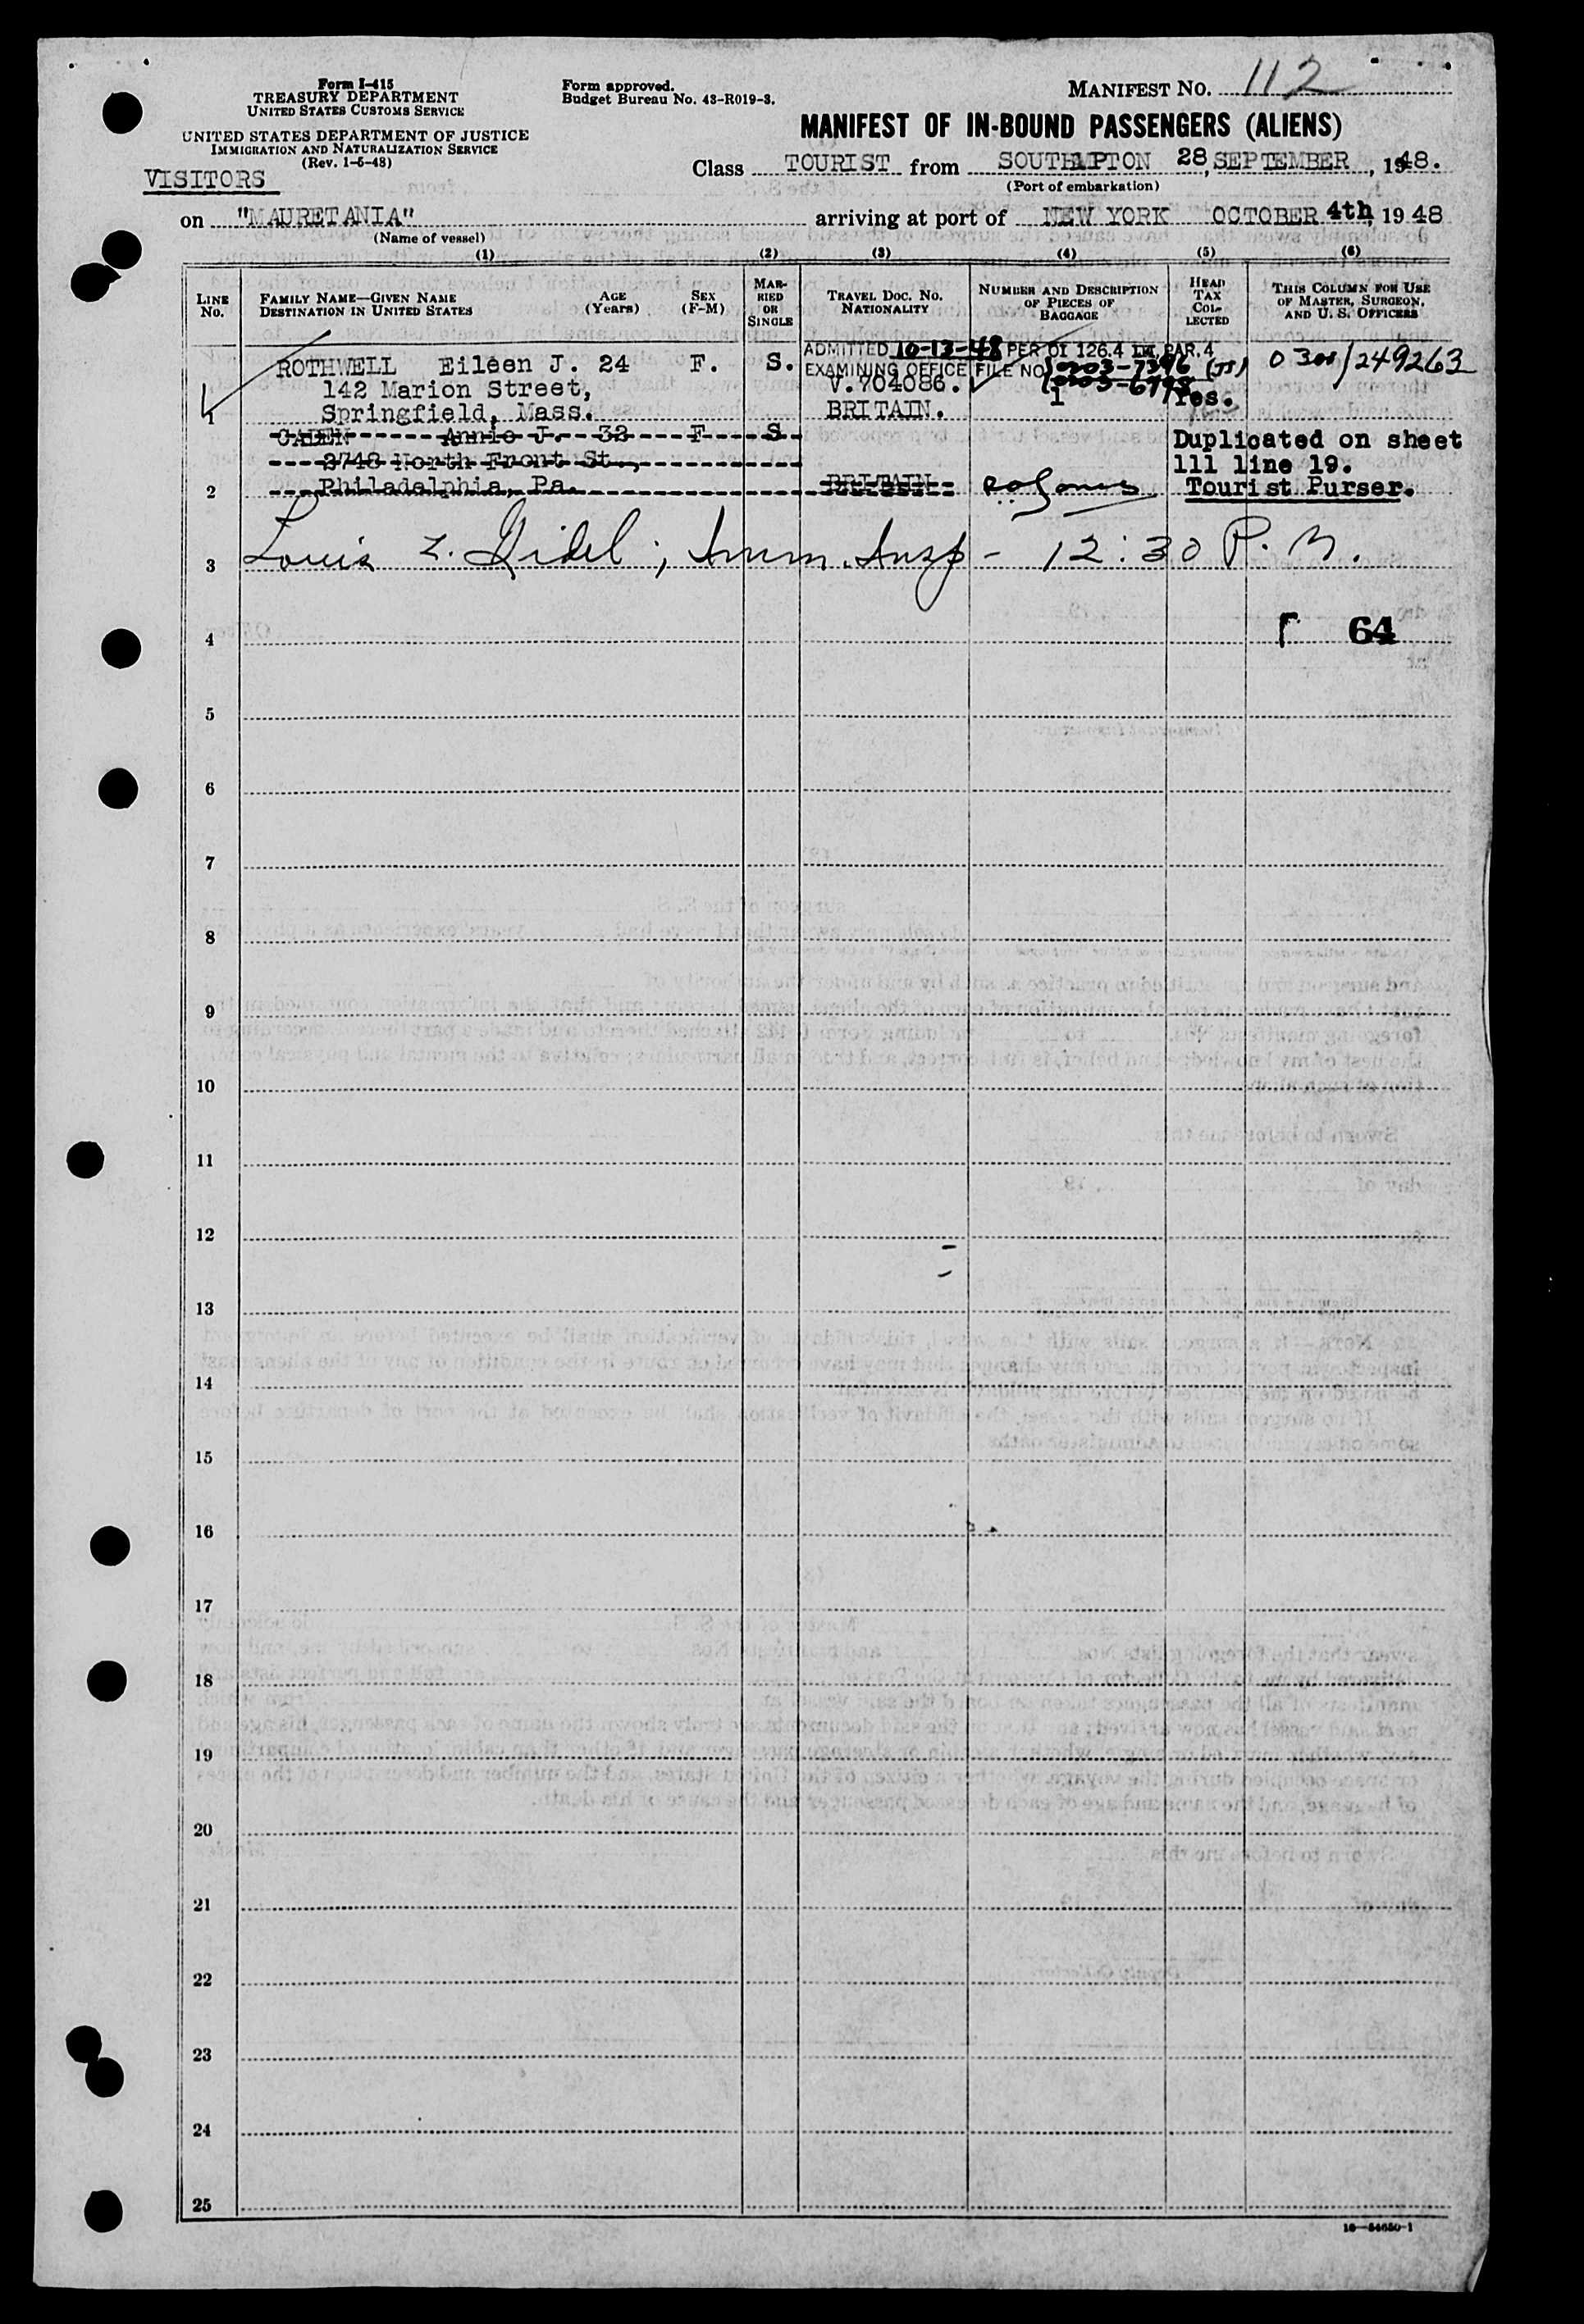 Form I-415
TREASURY DEPARTMENT
UNITED STATES CUSTOMS SERVICE
UNITED STATES DEPARTMENT OF JUSTICE
IMMIGRATION AND NATURALIZATION SERVICE
(Rev. 1-6-48)
VISITORS
Form approved.
Budget Bureau No. 43-R019-3.
MANIFEST NO. 112
MANIFEST OF IN-BOUND PASSENGERS (ALIENS)
Class TOURIST from SOUTHAMPTON 28, SEPTEMBER, 1948.
(Port of embarkation)
on "MAURETANIA" arriving at port of NEW YORK OCTOBER 4th, 1948
(Name of vessel)
(1) (2) (3) (4) (5) (6)
LINE No.
FAMILY NAME—GIVEN NAME
DESTINATION IN UNITED STATES
AGE (Years)
SEX (F-M)
MARRIED OR SINGLE
TRAVEL DOC. NO.
NATIONALITY
NUMBER AND DESCRIPTION OF PIECES OF BAGGAGE
HEAD TAX COLLECTED
THIS COLUMN FOR USE OF MASTER, SURGEON, AND U. S. OFFICERS
ADMITTED 10-13-48 PER OI 126.4 PAR. 4
EXAMINING OFFICE FILE NO. 0203-7396
0203-6798
ROTHWELL Eileen J. 24 F. S. 0300/249263
142 Marion Street, V.704086.
1 Springfield, Mass. BRITAIN. 1 Yes.
CADEN Annie J. 32 F S Duplicated on sheet
2748 North Front St., 111 line 19.
2 Philadelphia, Pa. BRITAIN Tourist Purser.
3 Louis Z. ; Imm. Insp - 12:30 P.M.
4 64
5
6
7
8
9
10
11
12
13
14
15
16
17
18
19
20
21
22
23
24
25